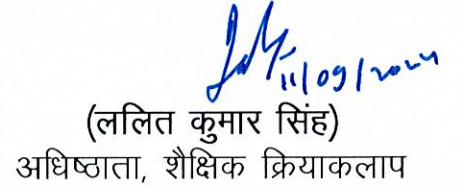 11/09/2024
(ललित कुमार सिंह)
अधिष्ठाता, शैक्षिक क्रियाकलाप